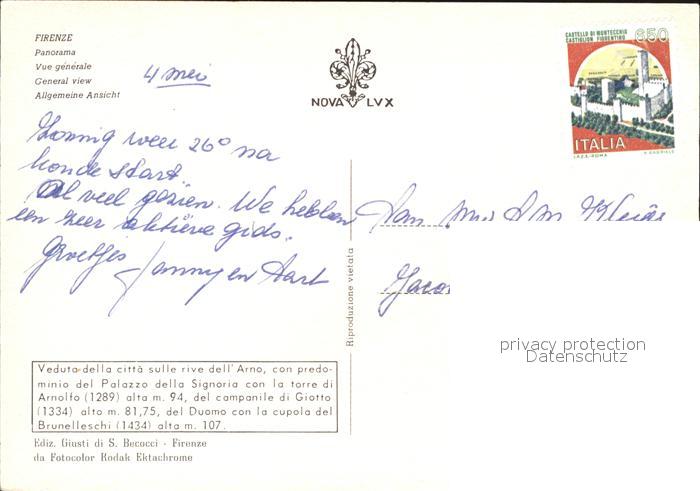 FIRENZE
Panorama
Vue générale
General view
Allgemeine Ansicht
4 mei
NOVA LVX
CASTELLO DI MONTECCHIO
CASTIGLION FIORENTINO
650
ITALIA
I.P.Z.S. - ROMA
Zonnig weer 26° na
koude start.
Al veel gezien. We hebben
een zeer aktiëve gids.
Groetjes Janny en Aart
Aan
Riproduzione vietata
privacy protection
Datenschutz
Veduta della città sulle rive dell'Arno, con predo-
minio del Palazzo della Signoria con la torre di
Arnolfo (1289) alta m. 94, del campanile di Giotto
(1334) alto m. 81,75, del Duomo con la cupola del
Brunelleschi (1434) alta m. 107.
Ediz. Giusti di S. Becocci - Firenze
da Fotocolor Kodak Ektachrome